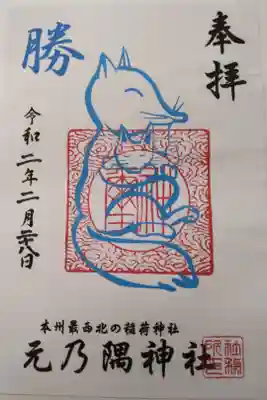 奉拝
勝
令和二年二月二十八日
本州最西北の稲荷神社
元乃隅神社